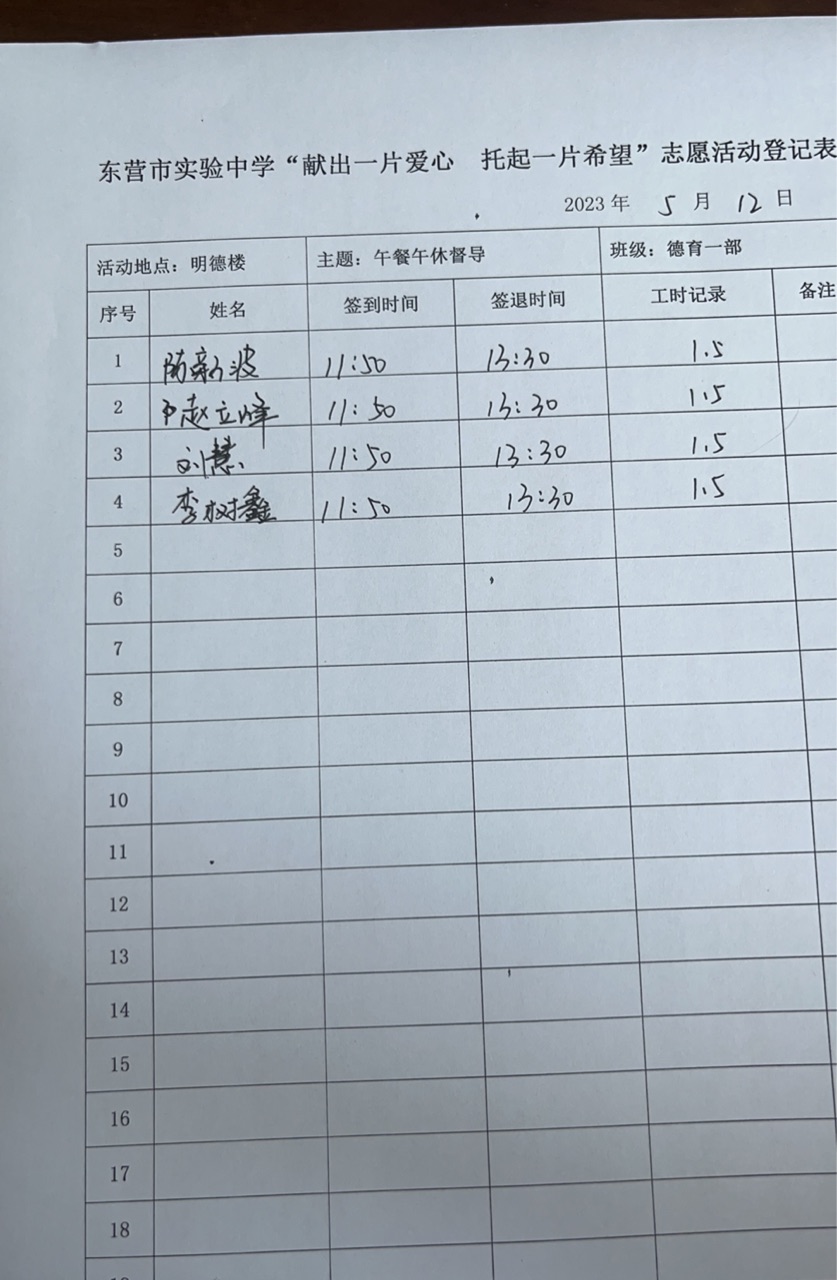 东营市实验中学“献出一片爱心 托起一片希望”志愿活动登记表
2023 年 5 月 12 日
活动地点：明德楼 主题：午餐午休督导 班级：德育一部
序号 姓名 签到时间 签退时间 工时记录 备注
1 新波 11:50 13:30 1.5
2 赵立峰 11:50 13:30 1.5
3 刘慧 11:50 13:30 1.5
4 李树鑫 11:50 13:30 1.5
5
6
7
8
9
10
11
12
13
14
15
16
17
18